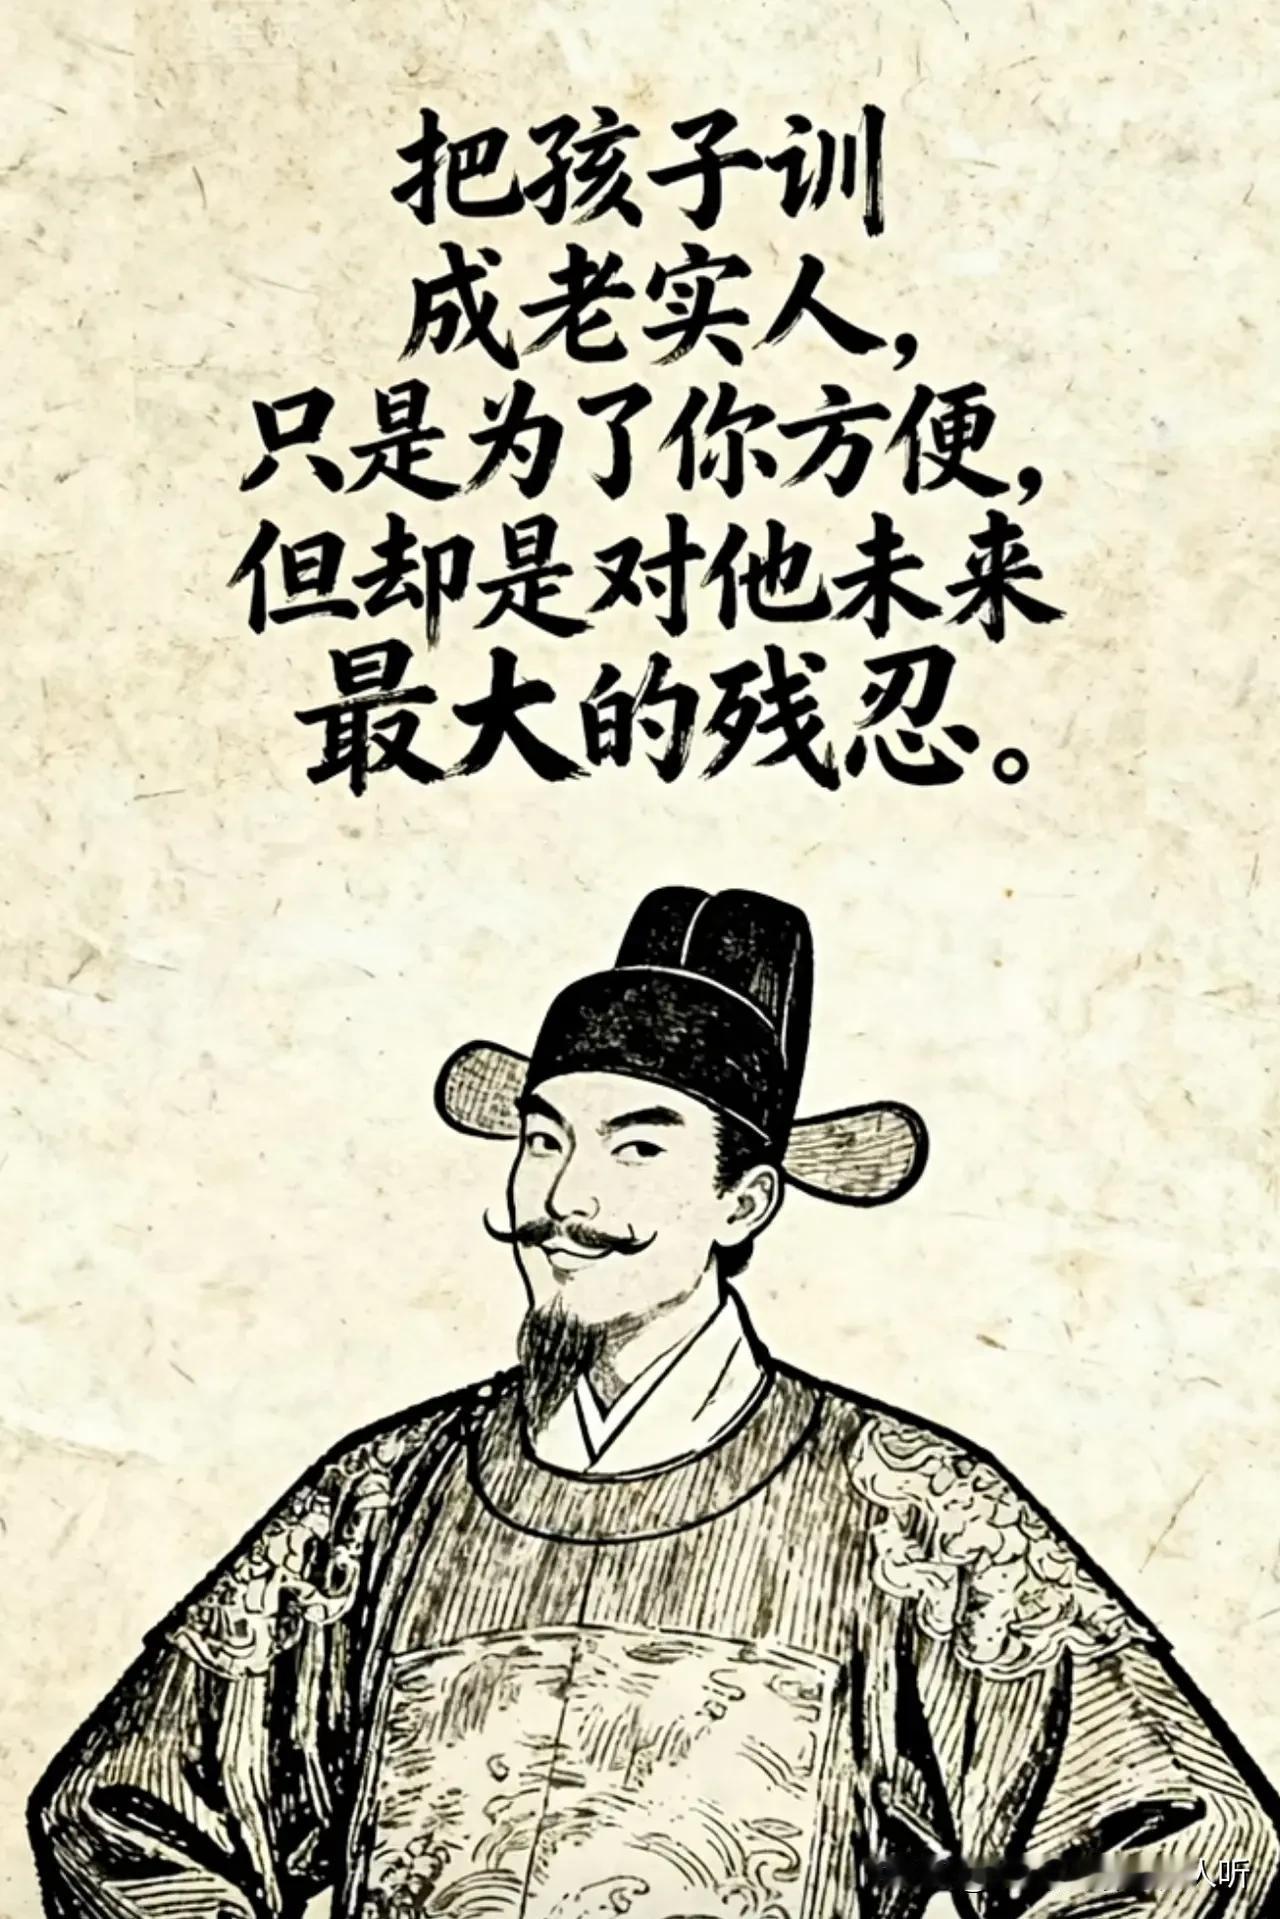 把孩子训
成老实人，
只是为了你方便，
但却是对他未来
最大的残忍。
人听